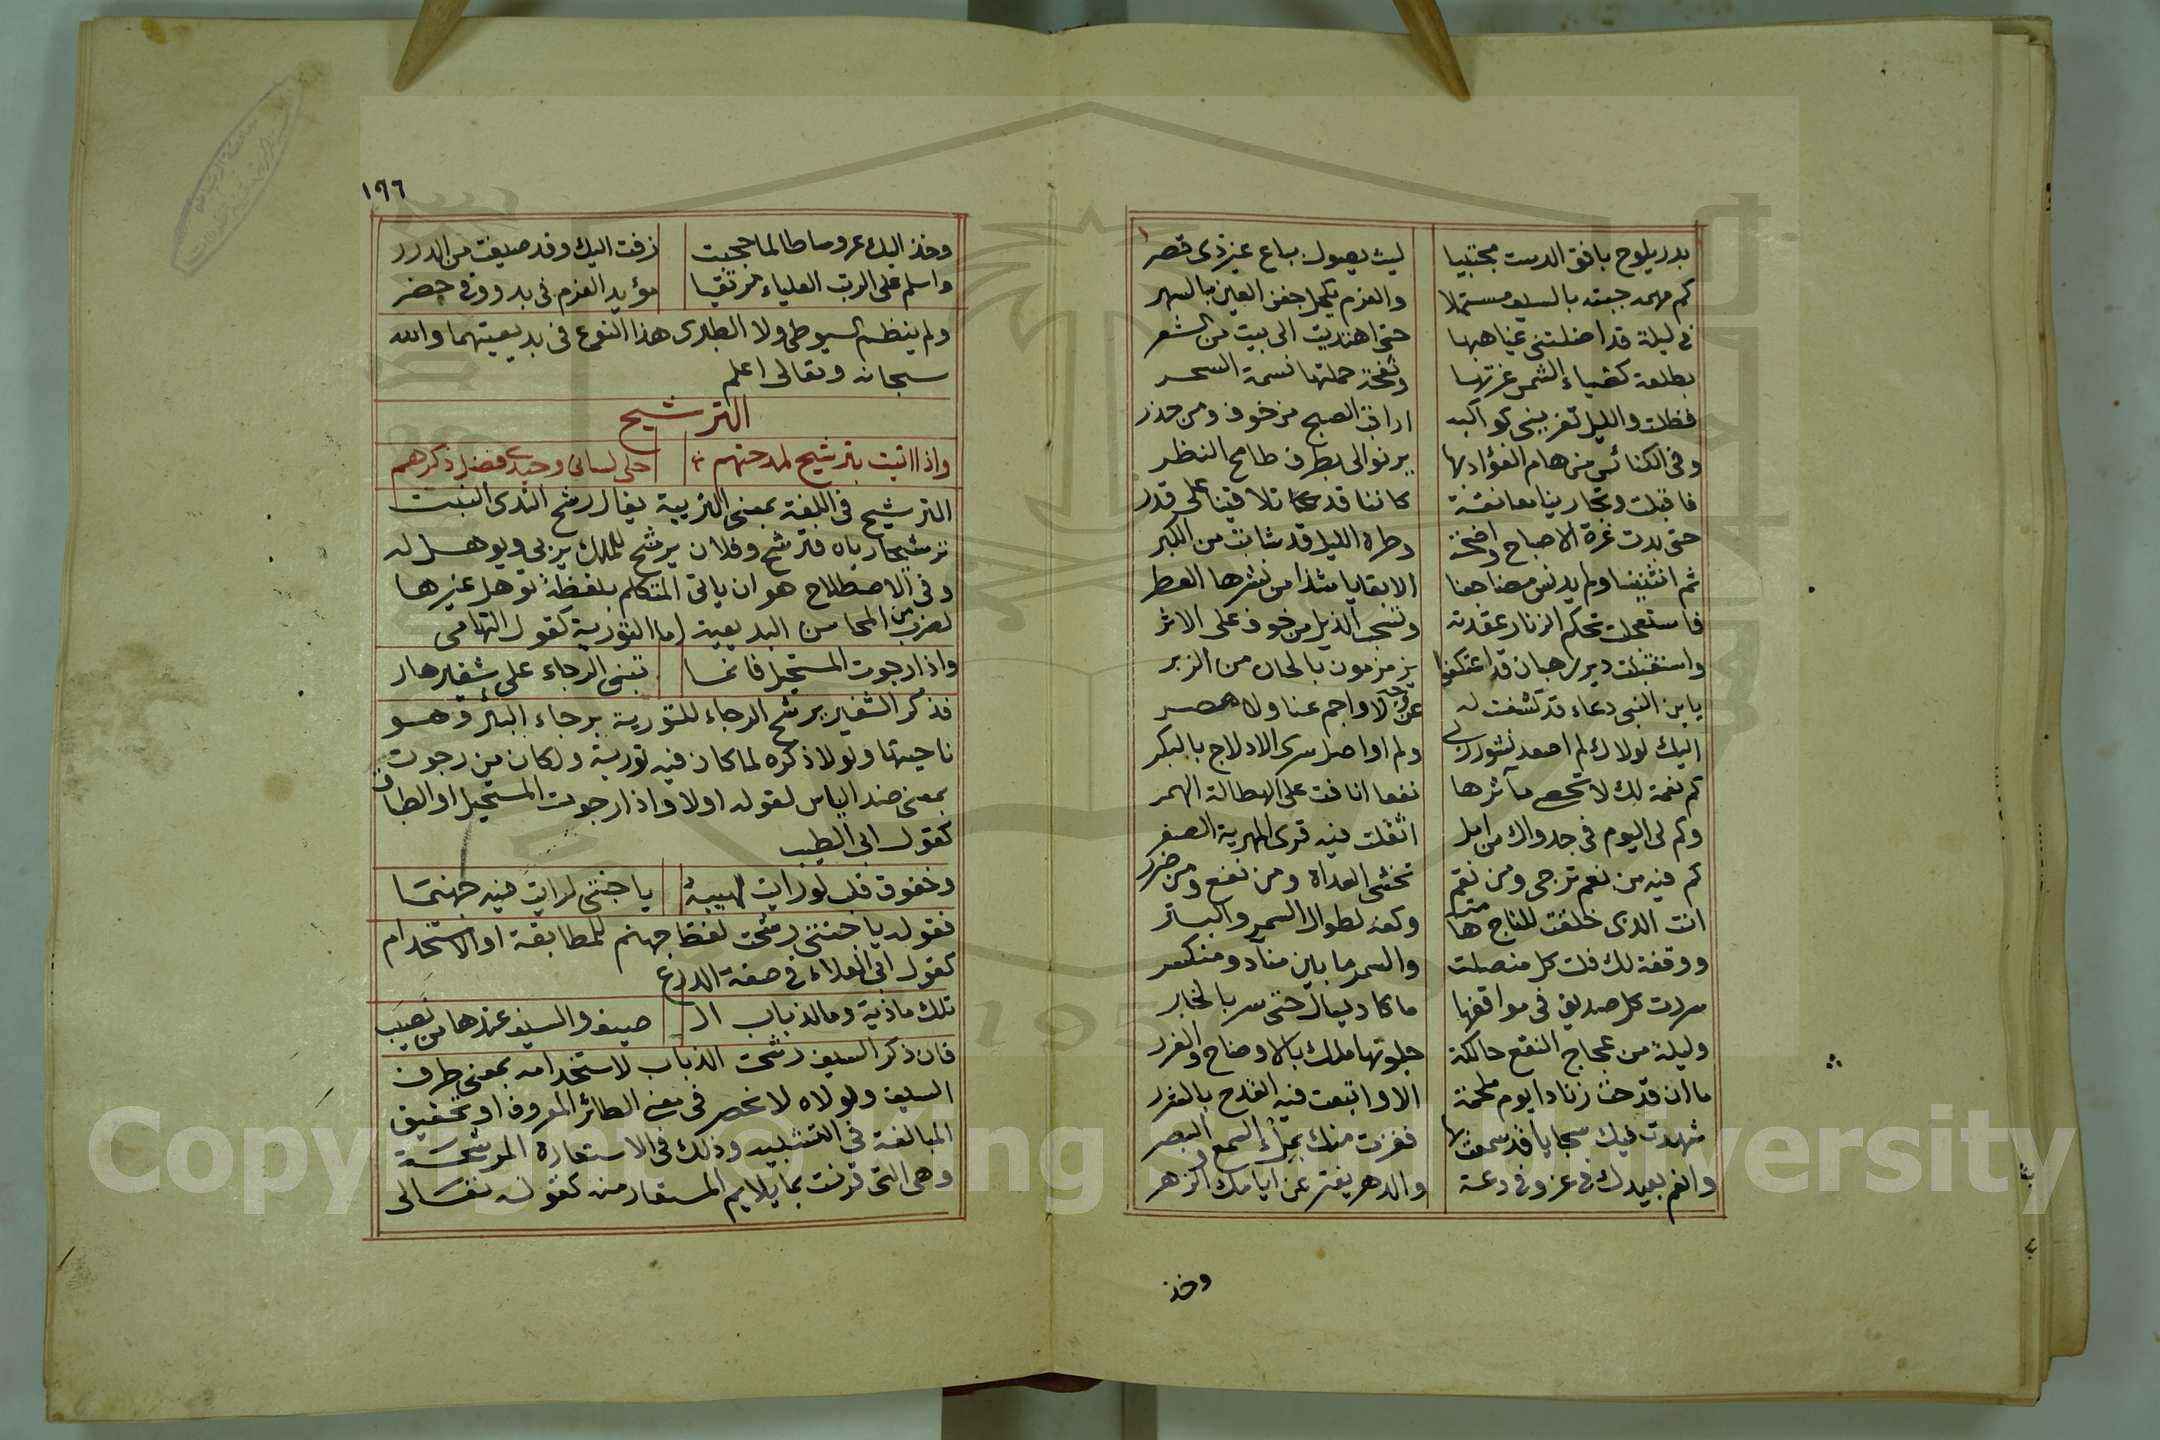 بدر يلوح بافق الدست مجتبيا ليث يصول بباع غير ذى قصر
كم مهمه جبته بالسيف مشتملا والعزم يكحل جفن العين بالسهر
فى ليلة قد اضلتنى غياهبها حتى اهتديت الى بيت من الشعر
بطلعة كضياء الشمس غرتها ونفحة حملتها نسمة السحر
فظلت والليل تغرينى كواكبه اراقب الصبح من خوف ومن حذر
وفى الكنائس من هام الفؤاد بها يرنو الى بطرف طامح النظر
فاقبلت وتجارينا معانقة كاننا قد تلاقينا على قدر
حتى بدت غرة الاصباح واضحة وطرة الليل قد شابت من الكبر
ثم انثنينا ولم يدنس مضاجعنا الا بقايا شذا من نشرها العطر
فاستعجلت تحكم الزنار عقدته وتسحب الذيل من خوف على الاثر
واستقبلت دير رهبان قد اعتكفوا يزمزمون بالحان من الزبر
يابن النبى دعاء قد كشفت له عن وجه لا واجم عنا ولا حصر
اليك لولاك لم اصعد نشوز ربى ولم اواصل سرى الادلاج بالبكر
كم نعمة لك لا تحصى مآثرها نفعا انافت على الهطالة الهمر
وكم لى اليوم فى جدواك من امل اثقلت فيه قرى المهرية الصعر
كم فيه من نعم ترجى ومن نقم تخشى العداة ومن نفع ومن ضرر
انت الذى خلقت للتاج هامته وكفه لطوال السمر والبتر
ووقفة لك فلت كل منصلت والسمر ما بين منآد ومنكسر
سردت كل صديق فى مواقفها ما كاد يسأل حتى سر بالخبر
وليلة من عجاج النقع حالكة جلوتها ملك بالاوضاح والغرر
ما ان قدحت زنادا يوم ملحمة الا واتبعت فيه القدح بالشرر
شهدت فيك سجايا قد سمعت بها ففزت منك بملء السمع والبصر
وانعم بعيدك فى عز وفى دعة والدهر يفتر عن ايامك الزهر
وخذ
١٦٦
وخذ اليك عروسا طالما حجبت زفت اليك وقد صيغت من الدرر
واسلم على الرتب العلياء مرتقيا مؤيد العزم فى بدو وفى حضر
ولم ينظم السيوطى ولا الطبرى هذا النوع فى بديعيتهما والله
سبحانه وتعالى اعلم
الترشيح
واذا اتيت بترشيح لمدحتهم حلى لسانى وجيدى فضل ذكرهم
الترشيح فى اللغة بمعنى التربية يقال رشح الندى النبت
ترشيحا رباه فترشح وفلان يرشح للملك يربى ويوهل له
وفى الاصطلاح هو ان ياتى المتكلم بلفظة توهل غيرها
لضرب من المحاسن البديعية اما التورية كقول التهامى
واذا رجوت المستحيل فانما تبنى الرجاء على شفير هار
فذكر الشفير يرشح الرجاء للتورية برجاء البئر وهو
ناحيتها ولولا ذكره لما كان فيه تورية ولكان من رجوت
بمعنى ضد الياس لقوله اولا واذا رجوت المستحيل او الطباق
كقول ابى الطيب
وخفوق قلب لو رايت لهيبه يا جنتى لرايت فيه جهنما
فقوله يا جنتى رشحت لفظ جهنم للمطابقة او الاستخدام
كقول ابى العلاء فى صفة الدرع
تلك ماذية وما لذباب الـ صيف والسيف عندها من نصيب
فان ذكر السيف رشحت الذباب لاستخدامه بمعنى طرف
السيف ولولاه لانحصر فى معنى الطائر المعروف او تحقيق
المبالغة فى التشبيه وذلك فى الاستعارة المرشحة
وهى التى قرنت بما يلايم المستعار منه كقوله تعالى
Copyright © King Saud University
1957